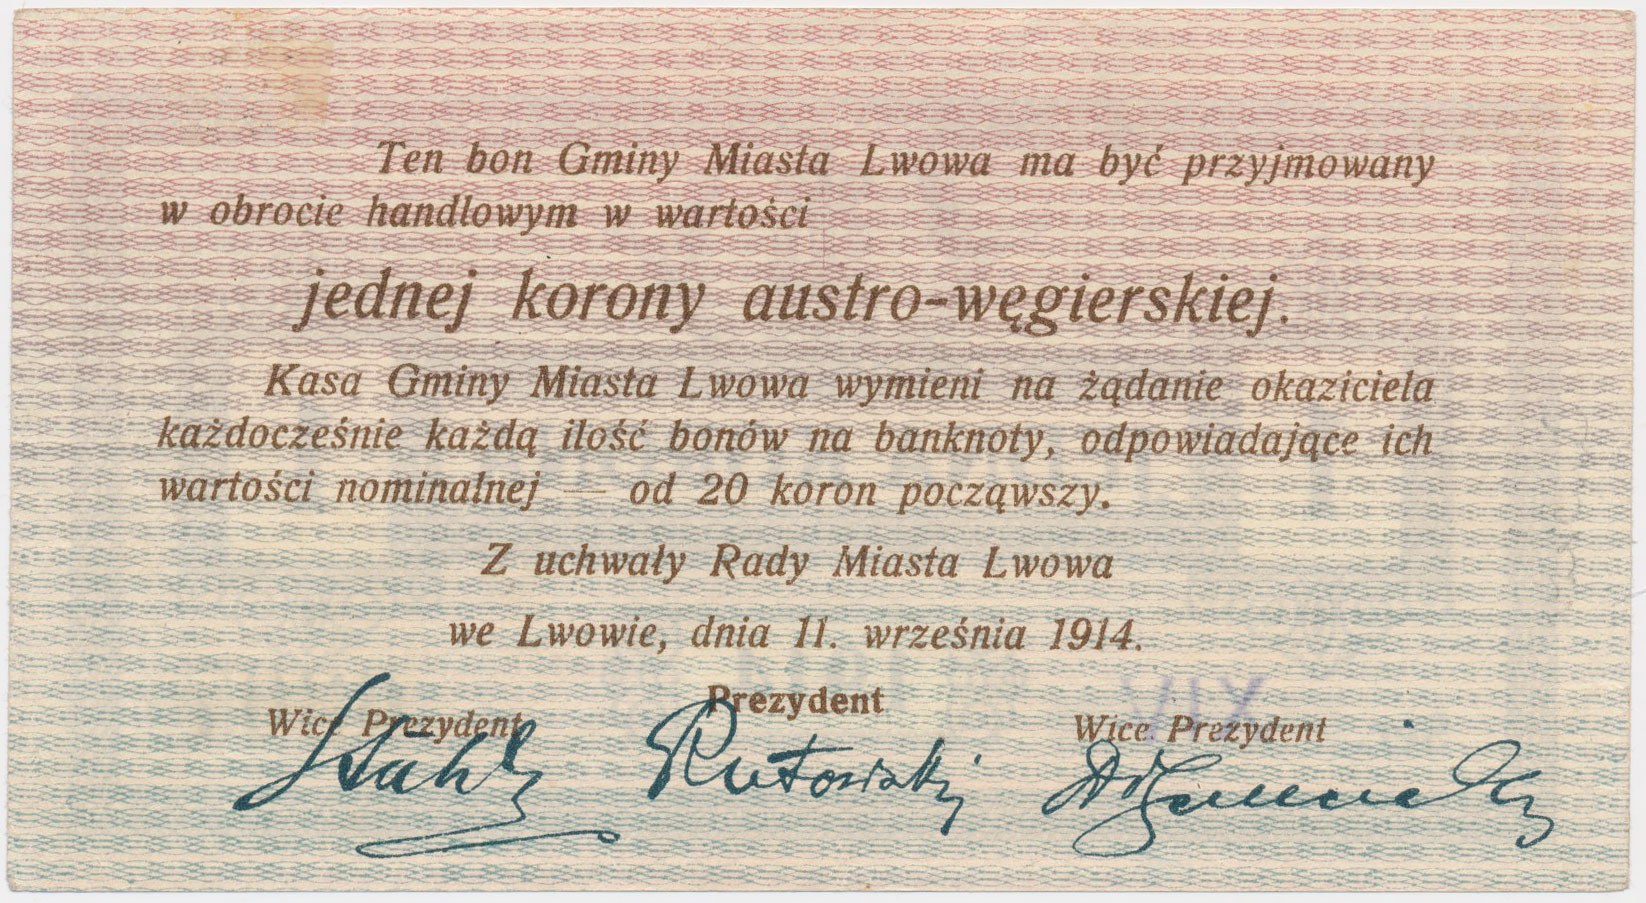 Ten bon Gminy Miasta Lwowa ma być przyjmowany
w obrocie handlowym w wartości
jednej korony austro-węgierskiej.
Kasa Gminy Miasta Lwowa wymieni na żądanie okaziciela
każdocześnie każdą ilość bonów na banknoty, odpowiadające ich
wartości nominalnej — od 20 koron począwszy.
Z uchwały Rady Miasta Lwowa
we Lwowie, dnia 11. września 1914.
Prezydent
Wice Prezydent Wice Prezydent
Stahl Rutowski